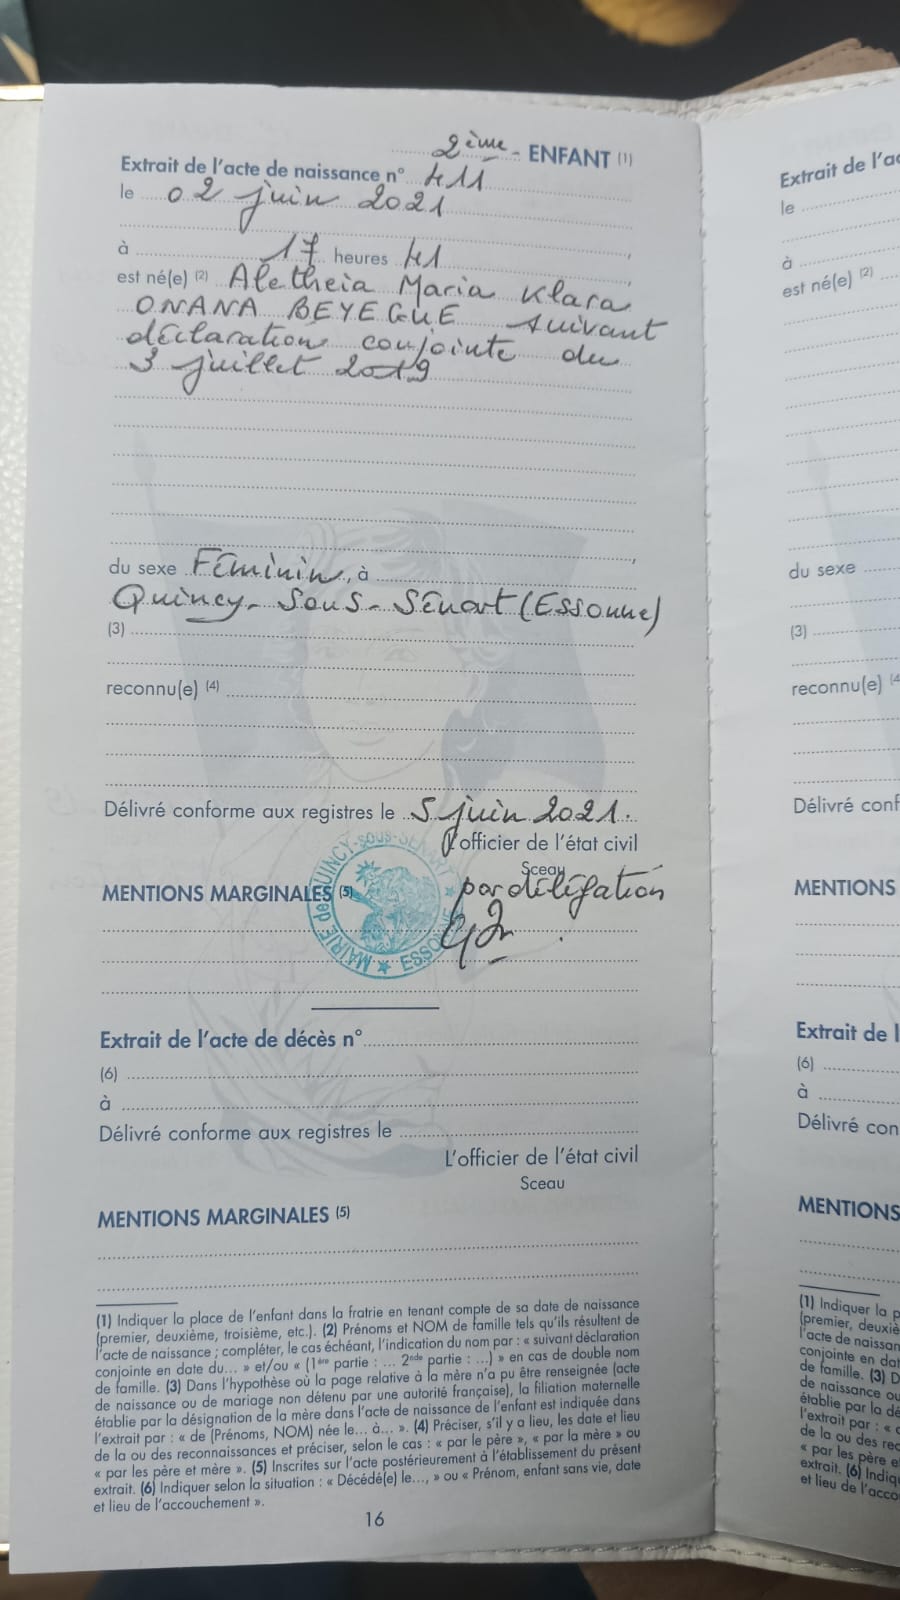 2ème - ENFANT (1)
Extrait de l'acte de naissance n° 411
le 02 juin 2021
à 17 heures 41
est né(e) (2) Aletheia Maria Klara
ONANA BEYEGUE suivant
déclaration conjointe du
3 juillet 2019
du sexe Féminin, à
Quincy-Sous-Sénart (Essonne)
(3)
reconnu(e) (4)
Délivré conforme aux registres le 5 juin 2021.
L'officier de l'état civil
Sceau
par délégation
MENTIONS MARGINALES (5)
MAIRIE de QUINCY-SOUS-SÉNART ★ ESSONNE ★
Extrait de l'acte de décès n°
(6)
à
Délivré conforme aux registres le
L'officier de l'état civil
Sceau
MENTIONS MARGINALES (5)
(1) Indiquer la place de l'enfant dans la fratrie en tenant compte de sa date de naissance
(premier, deuxième, troisième, etc.). (2) Prénoms et NOM de famille tels qu'ils résultent de
l'acte de naissance ; compléter, le cas échéant, l'indication du nom par : « suivant déclaration
conjointe en date du... » et/ou « (1ère partie : ... 2nde partie : ...) » en cas de double nom
de famille. (3) Dans l'hypothèse où la page relative à la mère n'a pu être renseignée (acte
de naissance ou de mariage non détenu par une autorité française), la filiation maternelle
établie par la désignation de la mère dans l'acte de naissance de l'enfant est indiquée dans
l'extrait par : « de (Prénoms, NOM) née le... à... ». (4) Préciser, s'il y a lieu, les date et lieu
de la ou des reconnaissances et préciser, selon le cas : « par le père », « par la mère » ou
« par les père et mère ». (5) Inscrites sur l'acte postérieurement à l'établissement du présent
extrait. (6) Indiquer selon la situation : « Décédé(e) le..., » ou « Prénom, enfant sans vie, date
et lieu de l'accouchement ».
16
Extrait de l'a
le
à
est né(e) (2)
du sexe
(3)
reconnu(e)
Délivré conf
MENTIONS
Extrait de l
(6)
à
Délivré con
MENTIONS
(1) Indiquer la p
(premier, deuxiè
l'acte de naissan
conjointe en dat
de famille. (3) D
de naissance ou
établie par la dé
l'extrait par : «
de la ou des rec
« par les père e
extrait. (6) Indiq
et lieu de l'acco